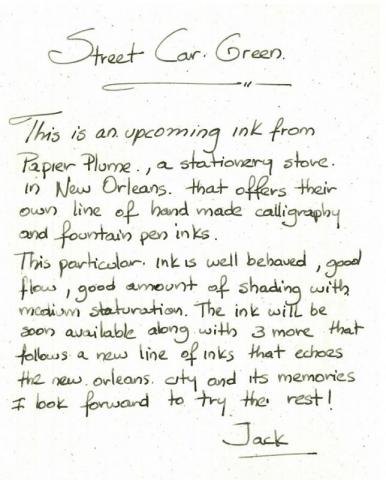 Street Car. Green.
This is an upcoming ink from
Papier Plume., a stationery store.
in New Orleans. that offers their
own line of hand made calligraphy
and fountain pen inks.
This particular. ink is well behaved, good
flow, good amount of shading with
medium staturation. The ink will be
soon available along with 3 more that
follows a new line of inks that echoes
the new. orleans. city and its memories
I look forward to try the rest!
Jack